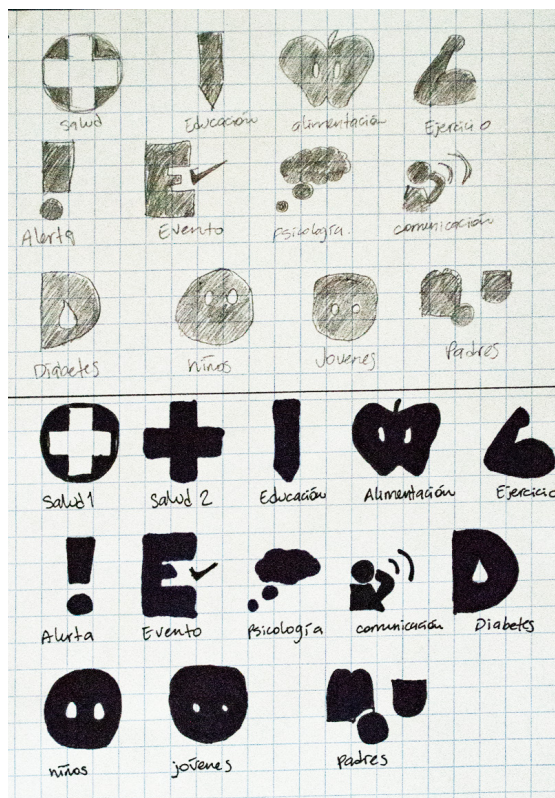 Salud Educación alimentación Ejercicio
Alerta Evento psicología. comunicación
Diabetes niños Jovenes Padres
Salud 1 Salud 2 Educación Alimentación Ejercicio
Alerta Evento Psicología comunicación Diabetes
niños jovenes padres